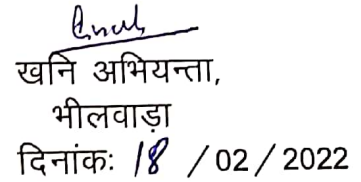 खनि अभियन्ता,
भीलवाड़ा
दिनांकः 18 / 02 / 2022